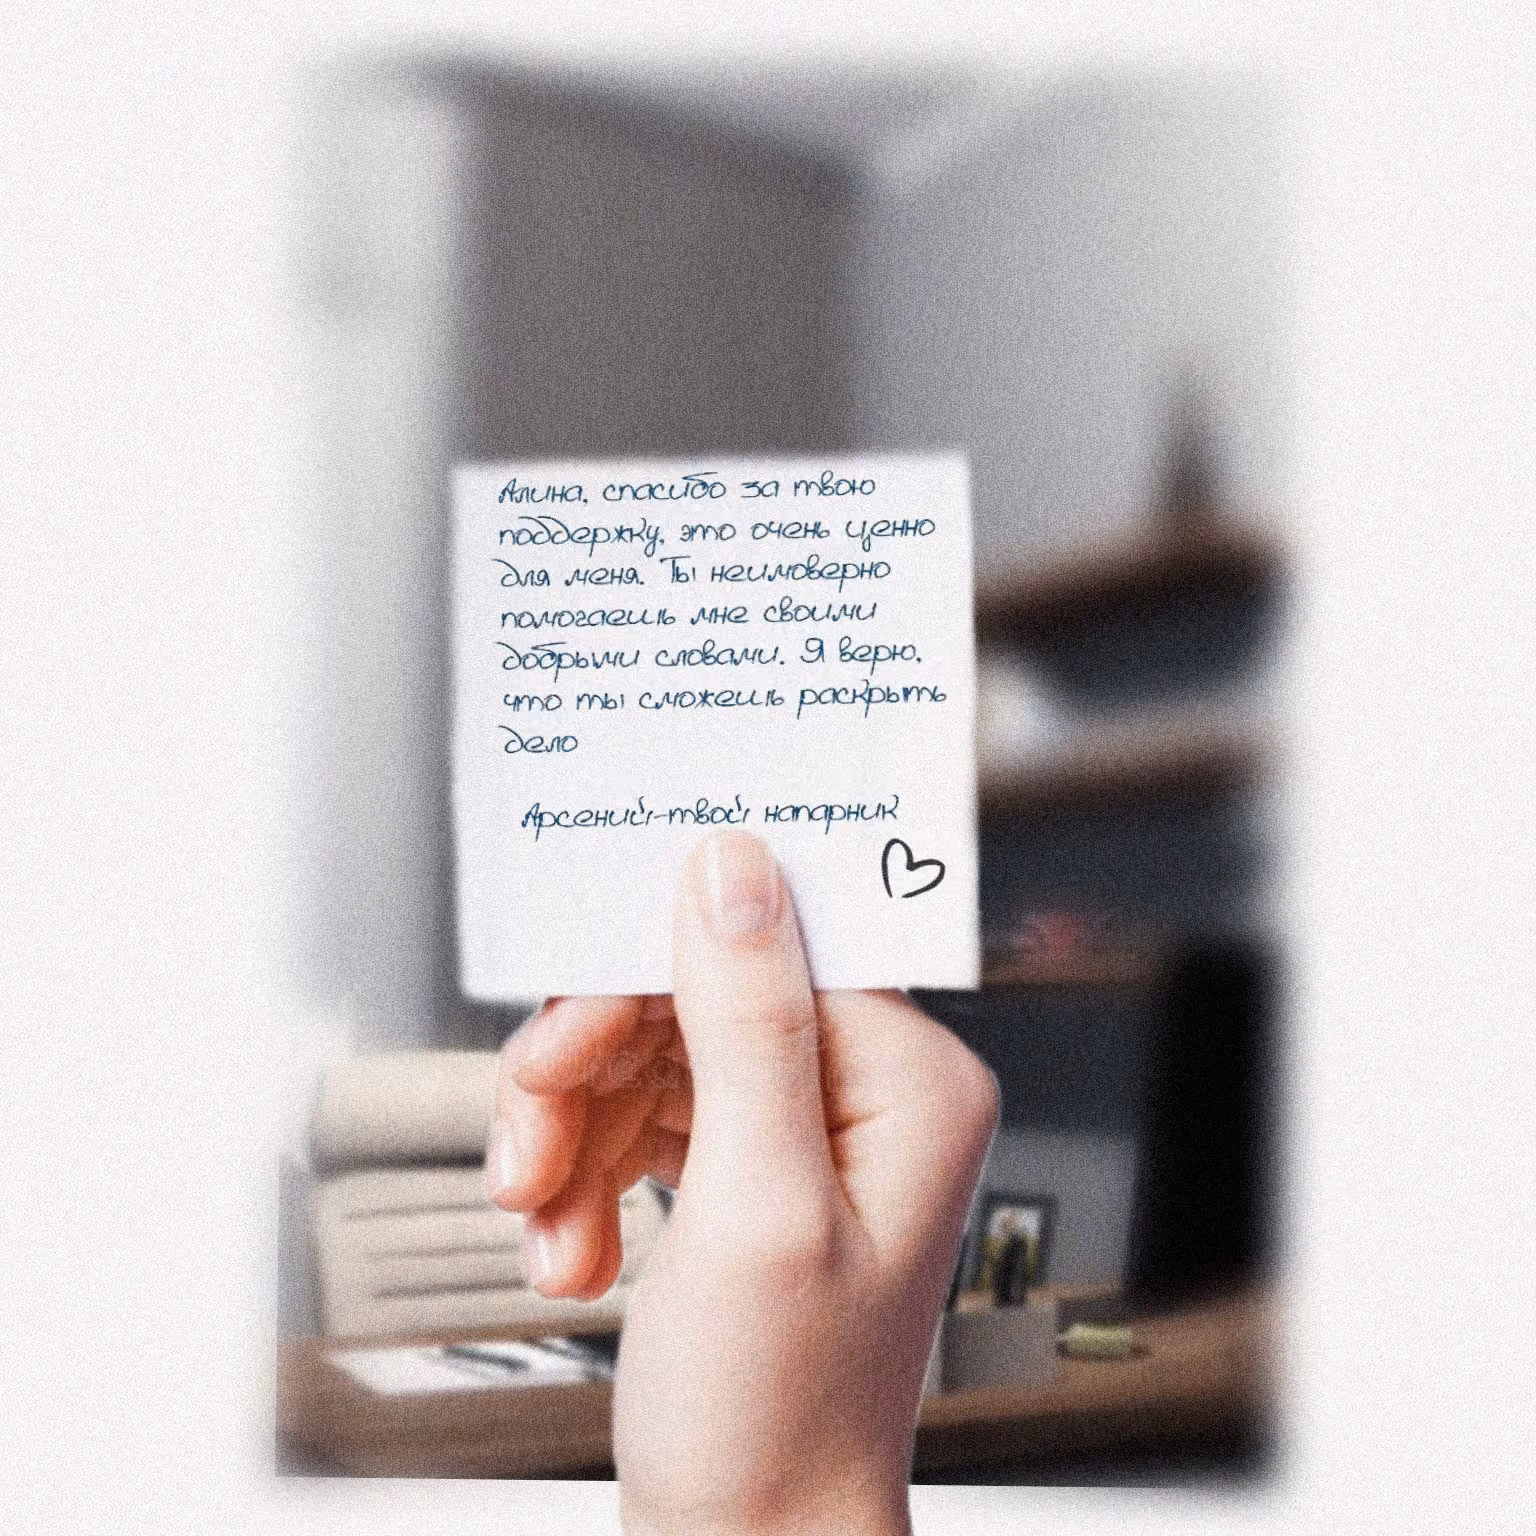 Алина, спасибо за твою
поддержку, это очень ценно
для меня. Ты неимоверно
помогаешь мне своими
добрыми словами. Я верю,
что ты сможешь раскрыть
дело
Арсений-твой напарник